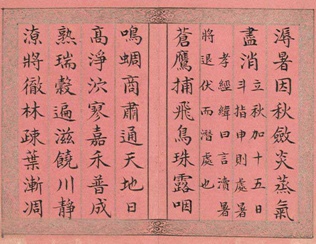 溽暑因秋斂炎蒸氣
盡消
立秋加十五日
斗指申則處暑
孝經緯曰言瀆暑
將退伏而潛處也
蒼鷹捕飛鳥珠露咽
鳴蜩商肅通天地日
高淨泬寥嘉禾普成
熟瑞穀遍滋饒川靜
潦將徹林疎葉漸凋